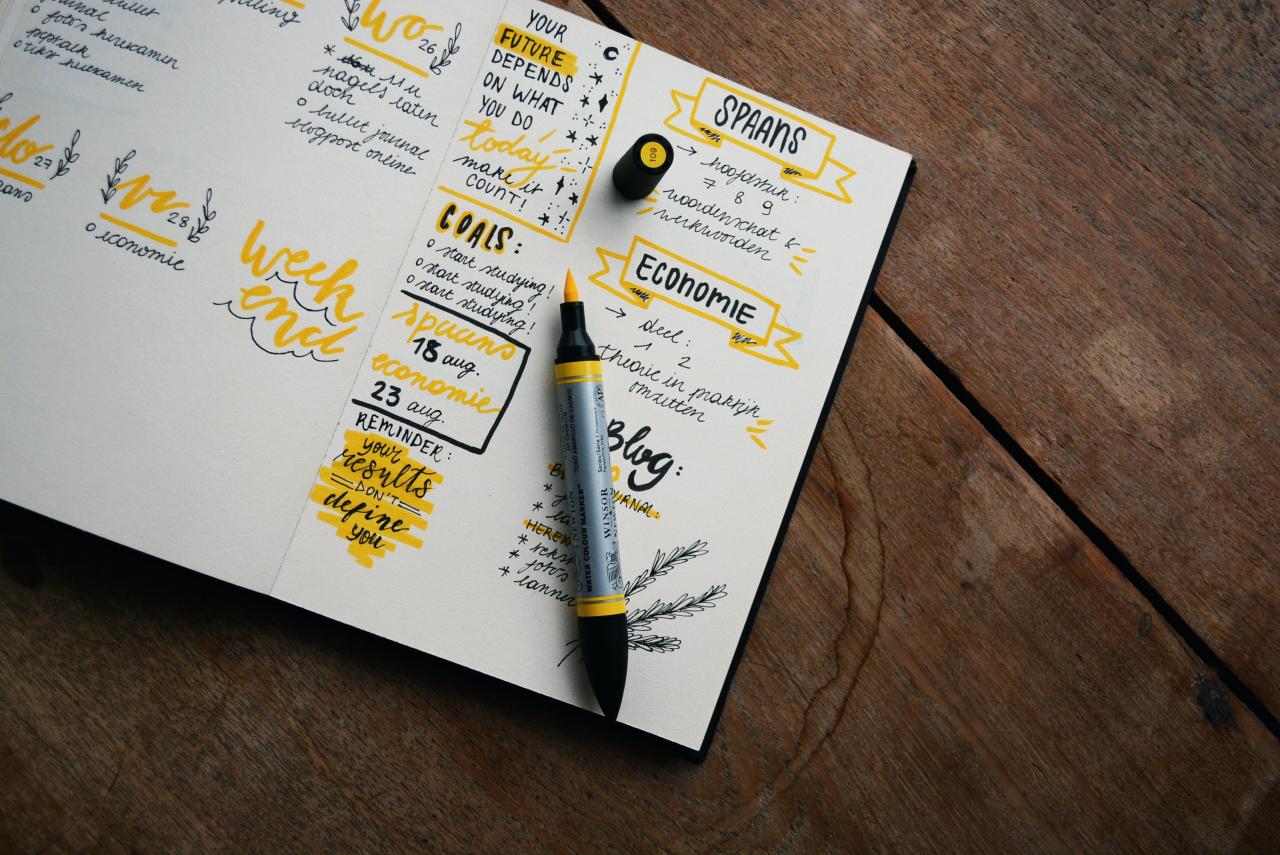 o foto's herexamen
o tekst herexamen
wo 26
* 11 u
nagels laten
doen
o bullet journal
blogpost online
do 27
vr 28
o economie
week
end
YOUR
FUTURE
DEPENDS
ON WHAT
YOU DO
today
make it
COUNT!
GOALS:
o start studying!
o start studying!
o start studying!
spaans
18 aug.
economie
23 aug.
REMINDER:
your
results
DON'T
define
you
SPAANS
→ hoofdstuk:
7 8 9
woordenschat &
werkwoorden
ECONOMIE
→ deel:
1 2
theorie in praktijk
omzetten
Blog:
* tekst
* foto's
109
WATER COLOUR MARKER™
WINSOR
NEWTON